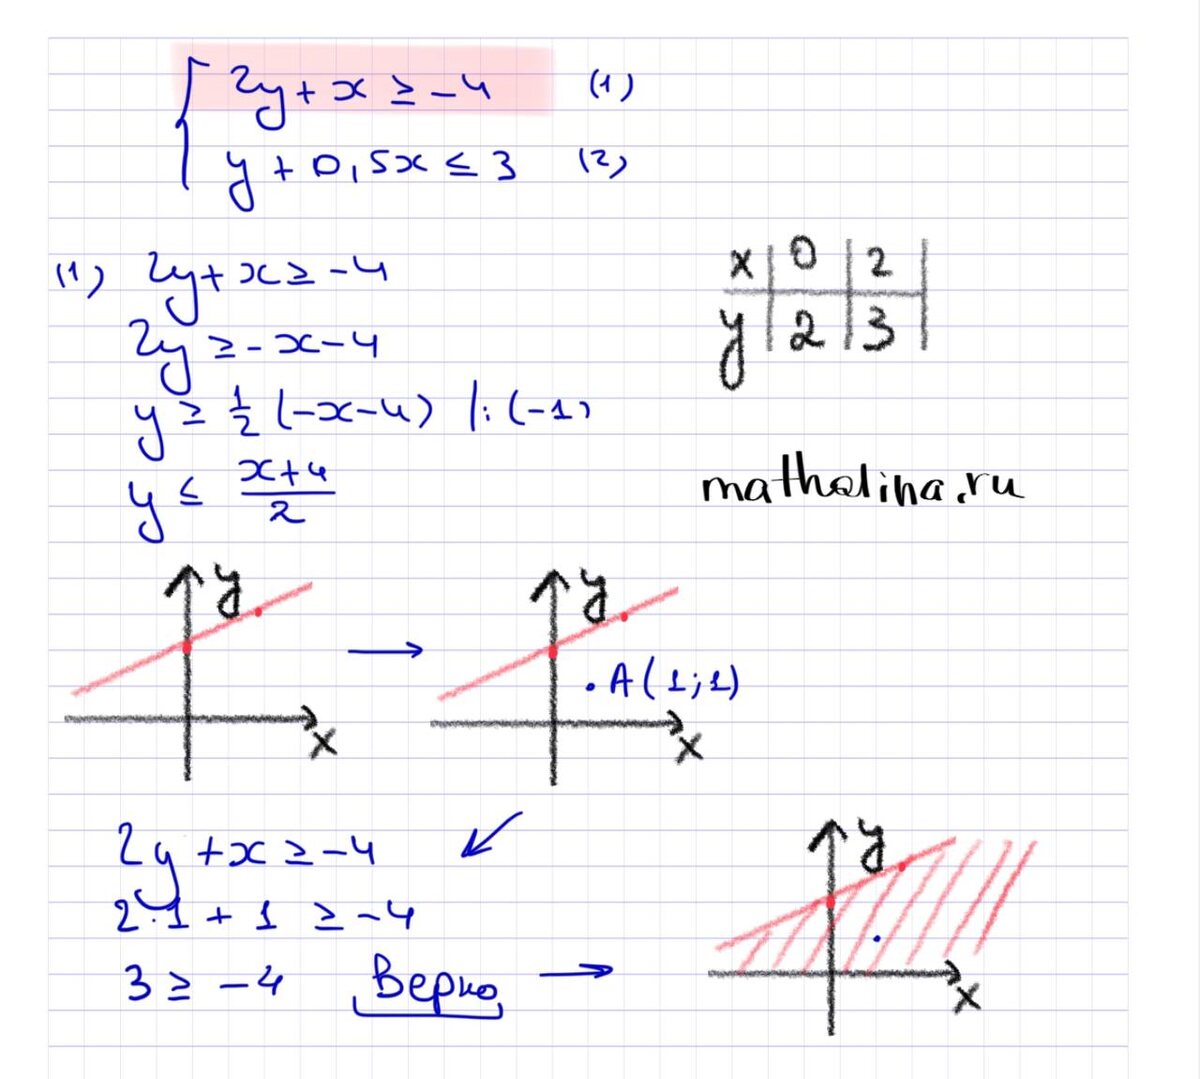 2y + x ≥ -4 (1)
y + 0,5x ≤ 3 (2)
(1) 2y + x ≥ -4
2y ≥ -x - 4
y ≥ 1/2 (-x-4) |: (-1)
y ≤ (x+4)/2
x | 0 | 2
y | 2 | 3
matholina.ru
y
x
y
A(1;1)
x
2y + x ≥ -4
2·1 + 1 ≥ -4
3 ≥ -4 Верно
y
x